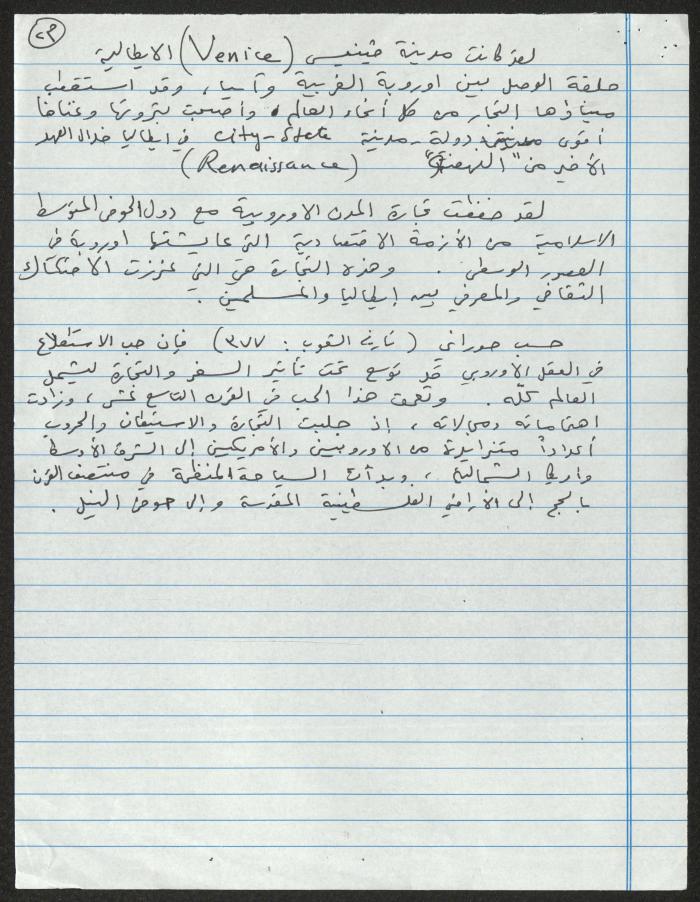 ٢٣
لقد كانت مدينة ڤينيس (Venice) الايطالية
حلقة الوصل بين اوروبة الغربية وآسيا، وقد استقطب
ميناؤها التجار من كل أنحاء العالم، وأصبحت بثروتها وغناها
أقوى دولة - مدينة City-State في ايطاليا خلال العهد
الأخير من "النهضة" (Renaissance)
لقد خففت تجارة المدن الاوروبية مع دول الحوض المتوسط
الاسلامية من الأزمة الاقتصادية التي عايشتها اوروبة في
العصور الوسطى. وهذه التجارة هي التي عززت الاحتكاك
الثقافي والمعرفي بين إيطاليا والمسلمين.
حسب حوراني (تاريخ الشعوب: ٣٧٧) فإن حب الاستطلاع
في العقل الاوروبي قد توسع تحت تأثير السفر والتجارة ليشمل
العالم كلّه. وتعمق هذا الحب في القرن التاسع عشر، وزادت
اهتماماته ومجالاته، إذ جلبت التجارة والاستيطان والحروب
أعداداً متزايدة من الاوروبيين والأمريكيين إلى الشرق الأوسط
وافريقيا الشمالية، وبدأت السياحة المنظمة في منتصف القرن
بالحج إلى الأراضي الفلسطينية المقدسة وإلى حوض النيل.